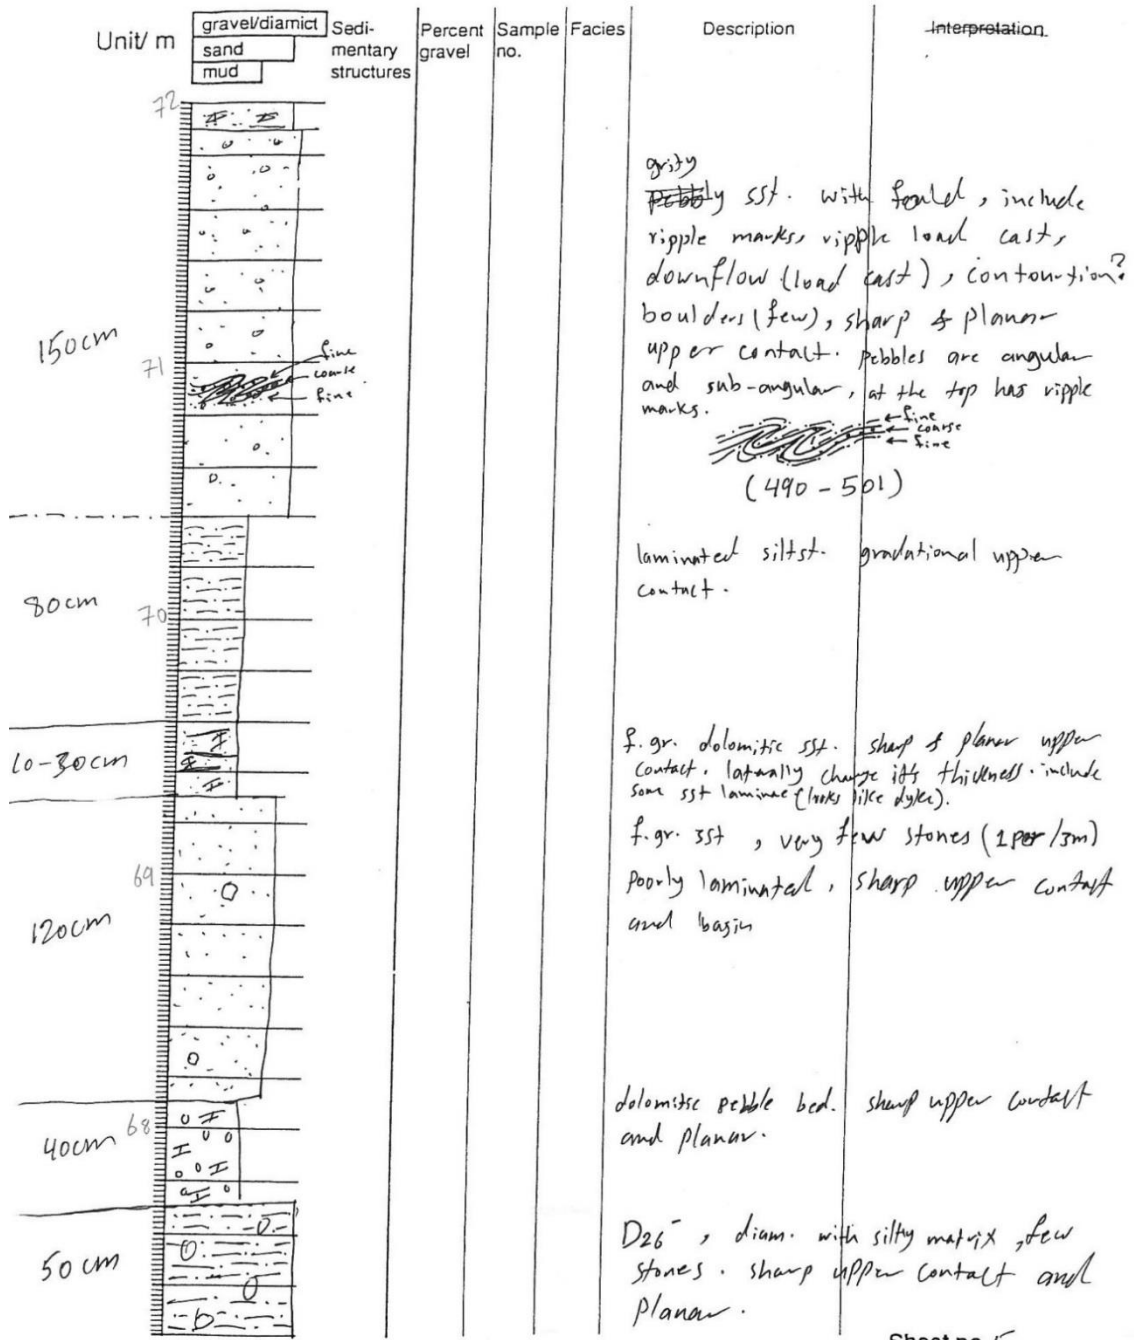 Unit/ m
gravel/diamict
sand
mud
Sedi-
mentary
structures
Percent
gravel
Sample
no.
Facies
Description
Interpretation
72
150cm
71
fine
coarse
fine
grity
pebbly sst. with , include
ripple marks, ripple load cast,
downflow (load cast), contourtion?
boulders (few), sharp & planar
upper contact. pebbles are angular
and sub-angular, at the top has ripple
marks.
fine
coarse
fine
(490 - 501)
80cm
70
laminated siltst. gradational upper
contact.
10-30cm
f.gr. dolomitic sst. sharp & planar upper
contact. laterally change it's thickness. include
some sst laminae (looks like dykes).
120cm
69
f.gr. sst, very few stones (1 per /3m)
poorly laminated, sharp upper contact
and basin
40cm
68
dolomitic pebble bed. sharp upper contact
and planar.
50cm
D26, diam. with silty matrix, few
stones. sharp upper contact and
planar.
Sheet no. 5